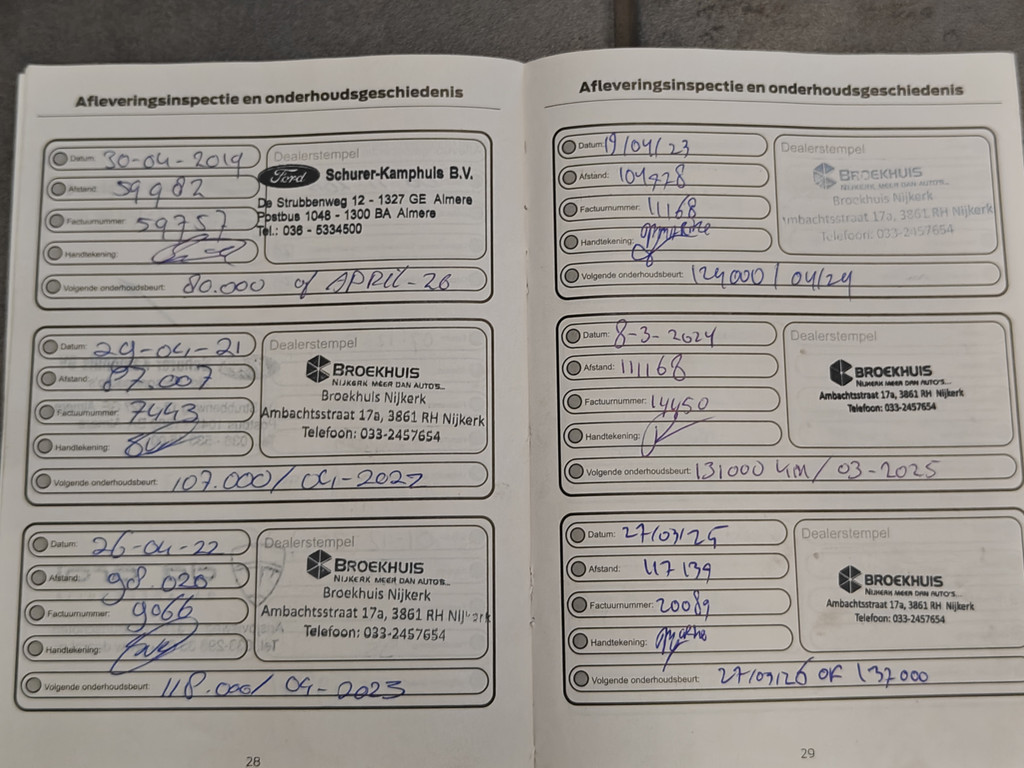 Afleveringsinspectie en onderhoudsgeschiedenis
Datum: 30-04-2019
Afstand: 59982
Factuurnummer: 59757
Handtekening:
Volgende onderhoudsbeurt: 80.000 of APRIL-20
Dealerstempel
Ford Schurer-Kamphuis B.V.
De Strubbenweg 12 - 1327 GE Almere
Postbus 1048 - 1300 BA Almere
Tel.: 036 - 5334500
Datum: 29-04-21
Afstand: 87.007
Factuurnummer: 7443
Handtekening:
Volgende onderhoudsbeurt: 107.000/ 04-2022
Dealerstempel
BROEKHUIS
NIJKERK MEER DAN AUTO'S...
Broekhuis Nijkerk
Ambachtsstraat 17a, 3861 RH Nijkerk
Telefoon: 033-2457654
Datum: 26-04-22
Afstand: 98.026
Factuurnummer: 9066
Handtekening:
Volgende onderhoudsbeurt: 118.000/ 04-2023
Dealerstempel
BROEKHUIS
NIJKERK MEER DAN AUTO'S...
Broekhuis Nijkerk
Ambachtsstraat 17a, 3861 RH Nijkerk
Telefoon: 033-2457654
28
Afleveringsinspectie en onderhoudsgeschiedenis
Datum: 19/04/23
Afstand: 104928
Factuurnummer: 11168
Handtekening:
Volgende onderhoudsbeurt: 124000 / 04/24
Dealerstempel
BROEKHUIS
NIJKERK MEER DAN AUTO'S...
Broekhuis Nijkerk
Ambachtsstraat 17a, 3861 RH Nijkerk
Telefoon: 033-2457654
Datum: 8-3-2024
Afstand: 111168
Factuurnummer: 14450
Handtekening:
Volgende onderhoudsbeurt: 131000 KM / 03-2025
Dealerstempel
BROEKHUIS
NIJKERK MEER DAN AUTO'S...
Ambachtsstraat 17a, 3861 RH Nijkerk
Telefoon: 033-2457654
Datum: 27/03/25
Afstand: 117139
Factuurnummer: 20089
Handtekening:
Volgende onderhoudsbeurt: 27/03/26 OF 137000
Dealerstempel
BROEKHUIS
NIJKERK MEER DAN AUTO'S...
Ambachtsstraat 17a, 3861 RH Nijkerk
Telefoon: 033-2457654
29